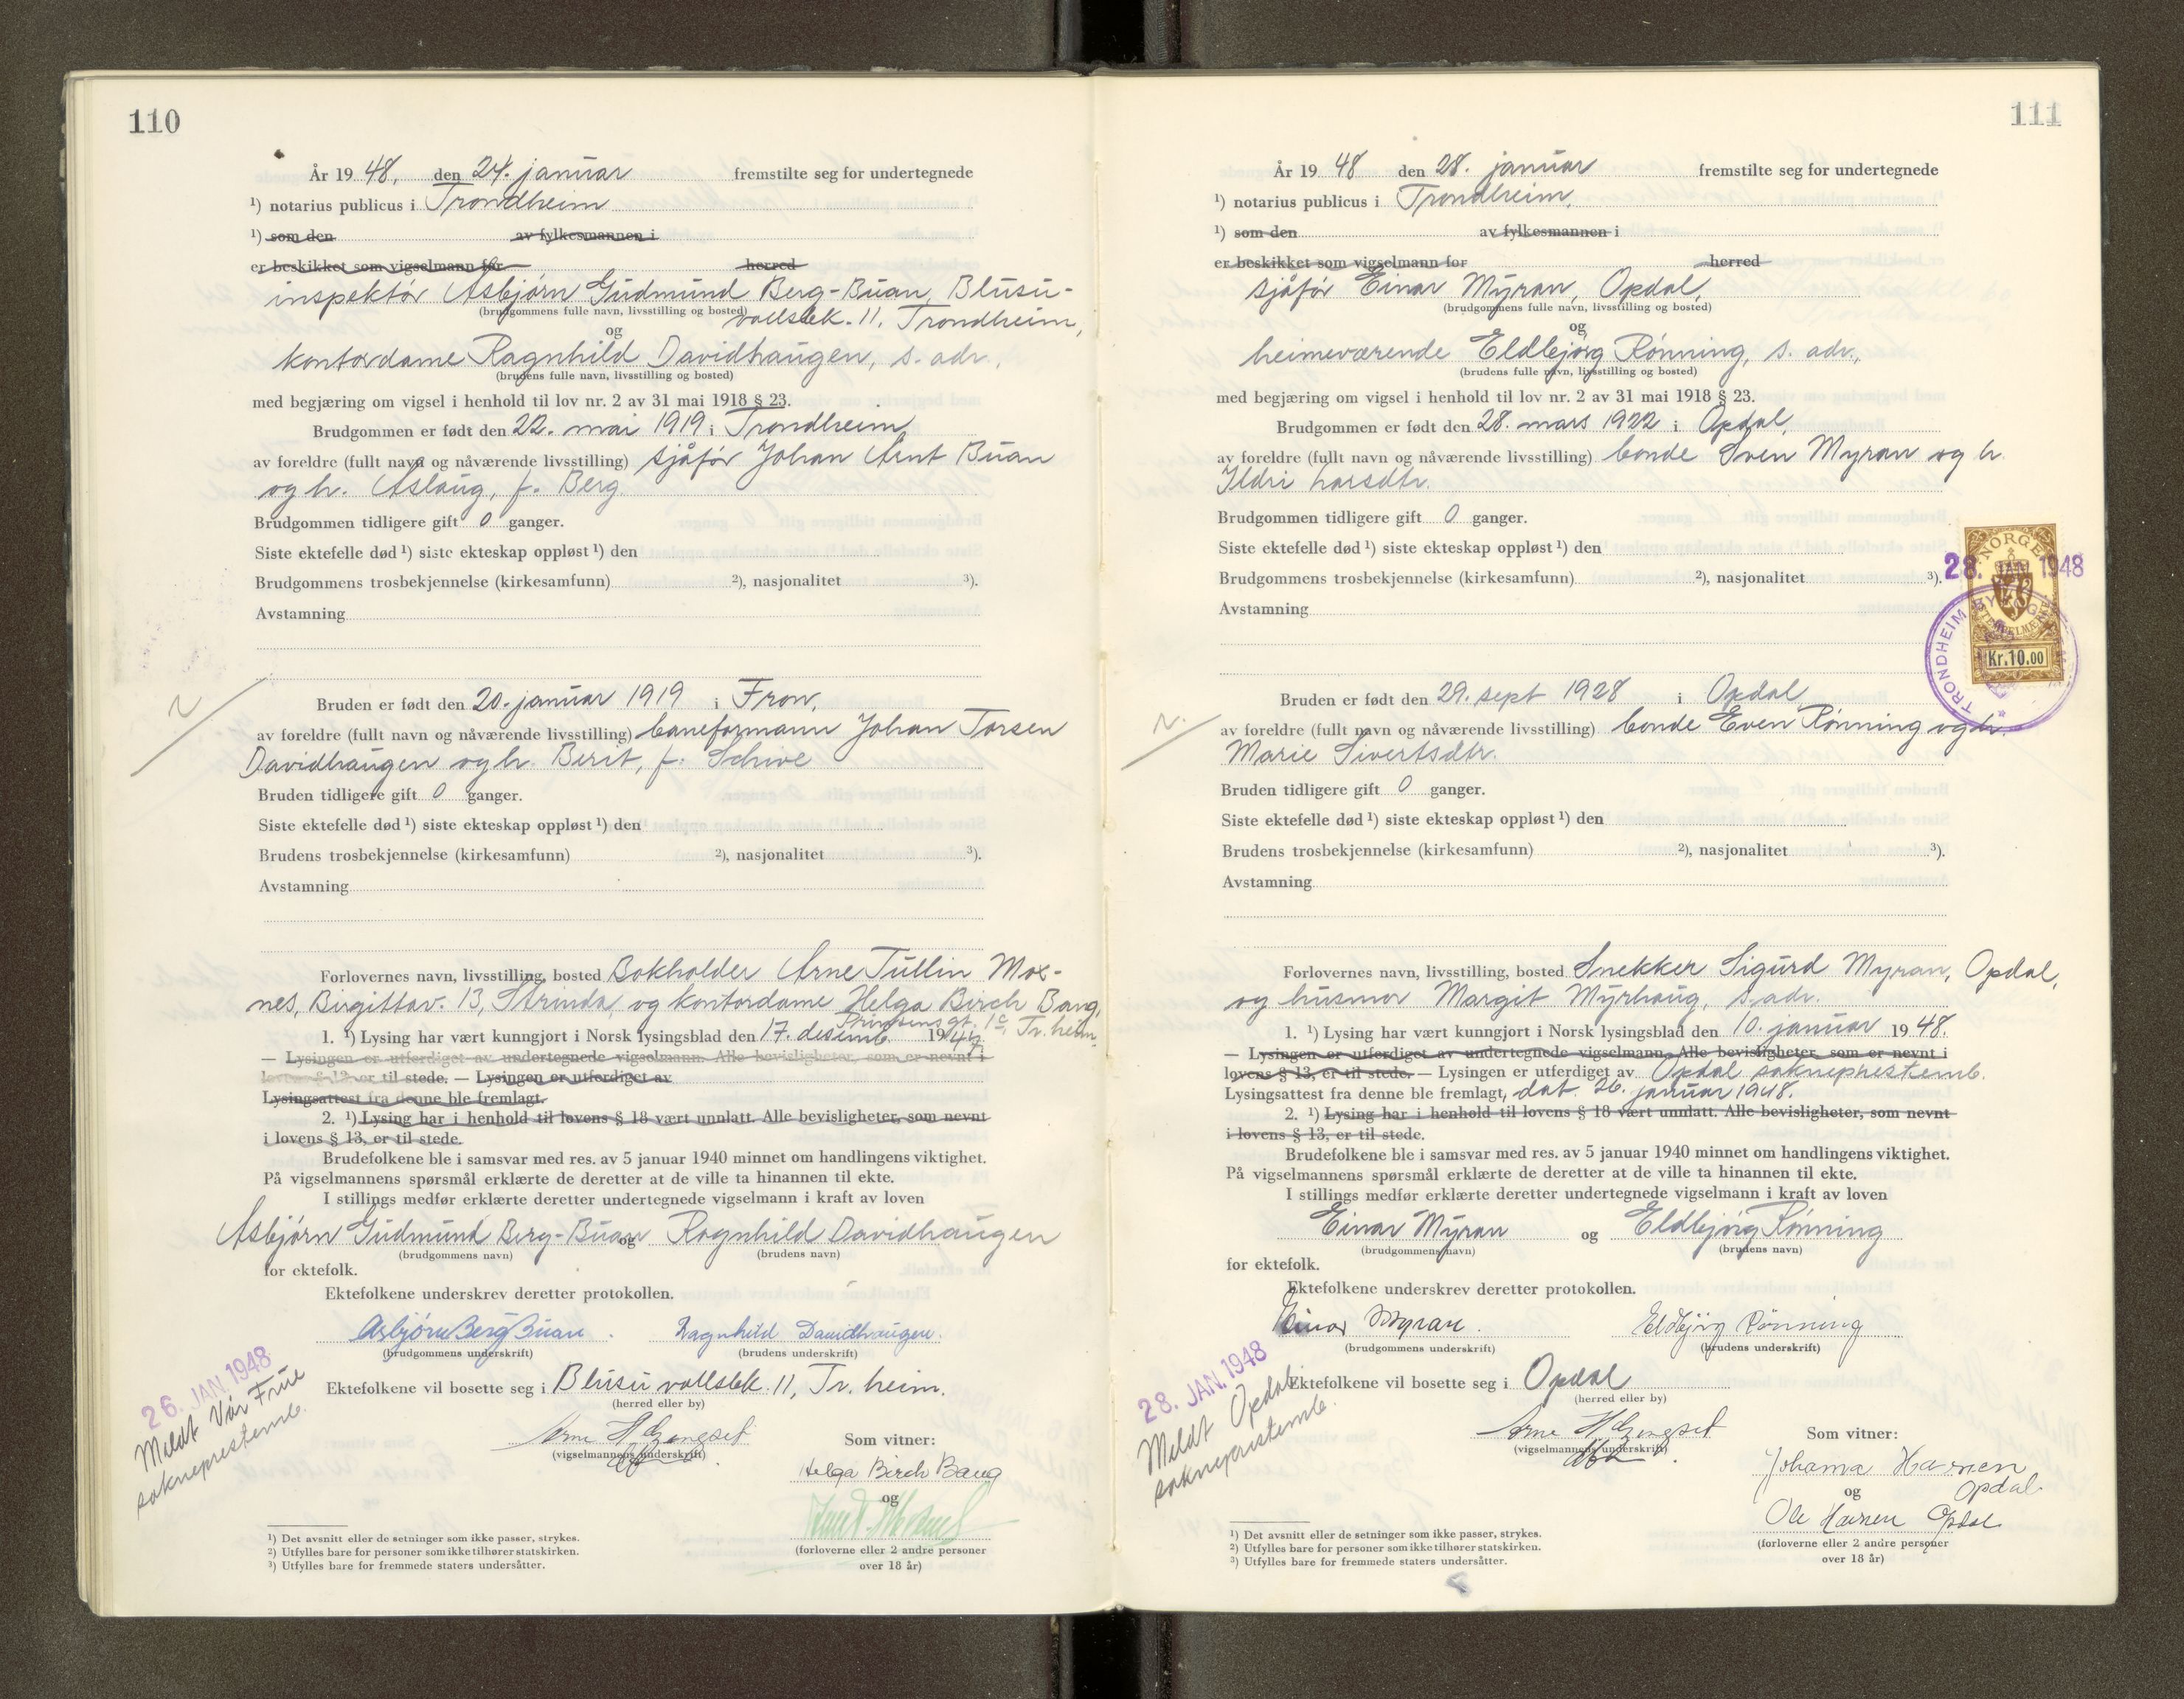 110
År 19 48, den 24. januar fremstilte seg for undertegnede
¹) notarius publicus i Trondheim
¹) som den av fylkesmannen i
er beskikket som vigselmann for herred
inspektør Asbjørn Gudmund Berg-Buan, Blusu-
(brudgommens fulle navn, livsstilling og bosted)
vollsbk. 11, Trondheim,
og
kontordame Ragnhild Davidhaugen, s. adr.,
(brudens fulle navn, livsstilling og bosted)
med begjæring om vigsel i henhold til lov nr. 2 av 31 mai 1918 § 23.
Brudgommen er født den 22. mai 1919 i Trondheim
av foreldre (fullt navn og nåværende livsstilling) sjåfør Johan Arnt Buan
og h. Aslaug, f. Berg.
Brudgommen tidligere gift 0 ganger.
Siste ektefelle død ¹) siste ekteskap oppløst ¹) den
Brudgommens trosbekjennelse (kirkesamfunn) ²), nasjonalitet ³).
Avstamning
Bruden er født den 20. januar 1919 i Fron,
av foreldre (fullt navn og nåværende livsstilling) baneformann Johan Torsen
Davidhaugen og h. Berit, f. Schive
Bruden tidligere gift 0 ganger.
Siste ektefelle død ¹) siste ekteskap oppløst ¹) den
Brudens trosbekjennelse (kirkesamfunn) ²), nasjonalitet ³).
Avstamning
Forlovernes navn, livsstilling, bosted Bokholder Arne Tullin Mox-
nes, Birgittav. 13, Strinda, og kontordame Helga Birch Bang,
Prinsens gt. 1c, Tr.heim.
1. ¹) Lysing har vært kunngjort i Norsk lysingsblad den 17. desemb. 1947.
— Lysingen er utferdiget av undertegnede vigselmann. Alle bevisligheter, som er nevnt i
lovens § 13 er til stede. — Lysingen er utferdiget av
Lysingsattest fra denne ble fremlagt.
2. ¹) Lysing har i henhold til lovens § 18 vært unnlatt. Alle bevisligheter, som nevnt
i lovens § 13, er til stede.
Brudefolkene ble i samsvar med res. av 5 januar 1940 minnet om handlingens viktighet.
På vigselmannens spørsmål erklærte de deretter at de ville ta hinannen til ekte.
I stillings medfør erklærte deretter undertegnede vigselmann i kraft av loven
Asbjørn Gudmund Berg-Buan og Ragnhild Davidhaugen
(brudgommens navn) (brudens navn)
for ektefolk.
Ektefolkene underskrev deretter protokollen.
Asbjørn Berg Buan. Ragnhild Davidhaugen.
(brudgommens underskrift) (brudens underskrift)
26. JAN. 1948
Meldt Vår Frue
sokneprestemb.
Ektefolkene vil bosette seg i Blusuvollsbk. 11, Tr.heim.
(herred eller by)
(vigselmannens underskrift)
Som vitner:
Helga Birch Bang
og
(forloverne eller 2 andre personer
over 18 år)
¹) Det avsnitt eller de setninger som ikke passer, strykes.
²) Utfylles bare for personer som ikke tilhører statskirken.
³) Utfylles bare for fremmede staters undersåtter.
111
År 19 48 den 28. januar fremstilte seg for undertegnede
¹) notarius publicus i Trondheim,
¹) som den av fylkesmannen i
er beskikket som vigselmann for herred
sjåfør Einar Myran, Opdal,
(brudgommens fulle navn, livsstilling og bosted)
og
heimeværende Eldbjørg Rønning, s. adr.,
(brudens fulle navn, livsstilling og bosted)
med begjæring om vigsel i henhold til lov nr. 2 av 31 mai 1918 § 23.
Brudgommen er født den 28. mars 1922 i Opdal,
av foreldre (fullt navn og nåværende livsstilling) bonde Sven Myran og h.
Ildri Larsdtr.
Brudgommen tidligere gift 0 ganger.
Siste ektefelle død ¹) siste ekteskap oppløst ¹) den
Brudgommens trosbekjennelse (kirkesamfunn) ²), nasjonalitet ³).
Avstamning
NORGE
28. JAN. 1948
STEMPELMERKE
Kr.10.00
TRONDHEIM
Bruden er født den 29. sept 1928 i Opdal
av foreldre (fullt navn og nåværende livsstilling) bonde Even Rønning og h.
Marie Sivertsdtr.
Bruden tidligere gift 0 ganger.
Siste ektefelle død ¹) siste ekteskap oppløst ¹) den
Brudens trosbekjennelse (kirkesamfunn) ²), nasjonalitet ³).
Avstamning
Forlovernes navn, livsstilling, bosted Snekker Sigurd Myran, Opdal,
og husmor Margit Myrhaug, s. adr.
1. ¹) Lysing har vært kunngjort i Norsk lysingsblad den 10. januar 1948.
— Lysingen er utferdiget av undertegnede vigselmann. Alle bevisligheter, som er nevnt i
lovens § 13, er til stede. — Lysingen er utferdiget av Opdal sokneprestemb.
Lysingsattest fra denne ble fremlagt, dat. 26. januar 1948.
2. ¹) Lysing har i henhold til lovens § 18 vært unnlatt. Alle bevisligheter, som nevnt
i lovens § 13, er til stede.
Brudefolkene ble i samsvar med res. av 5 januar 1940 minnet om handlingens viktighet.
På vigselmannens spørsmål erklærte de deretter at de ville ta hinannen til ekte.
I stillings medfør erklærte deretter undertegnede vigselmann i kraft av loven
Einar Myran og Eldbjørg Rønning
(brudgommens navn) (brudens navn)
for ektefolk.
Ektefolkene underskrev deretter protokollen.
Einar Myran. Eldbjørg Rønning
(brudgommens underskrift) (brudens underskrift)
28. JAN. 1948
Meldt Opdal
sokneprestemb.
Ektefolkene vil bosette seg i Opdal
(herred eller by)
(vigselmannens underskrift)
Som vitner:
Opdal
og
Ole Opdal
(forloverne eller 2 andre personer
over 18 år)
¹) Det avsnitt eller de setninger som ikke passer, strykes.
²) Utfylles bare for personer som ikke tilhører statskirken.
³) Utfylles bare for fremmede staters undersåtter.